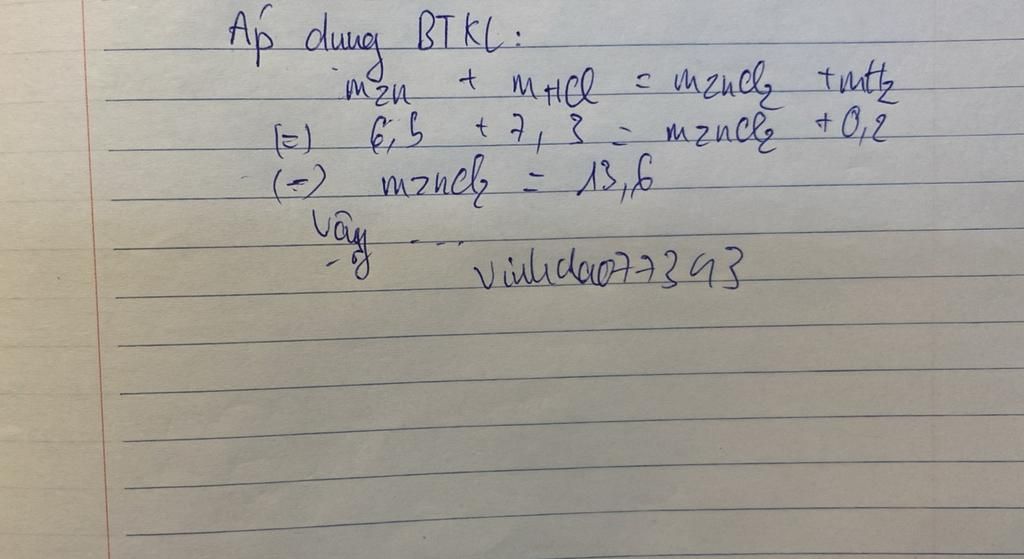 Áp dung BTKL:
mZn + mHCl = mZnCl2 + mH2
(=) 6,5 + 7,3 = mZnCl2 + 0,2
(=) mZnCl2 = 13,6
Vậy ...
vinhdao77393